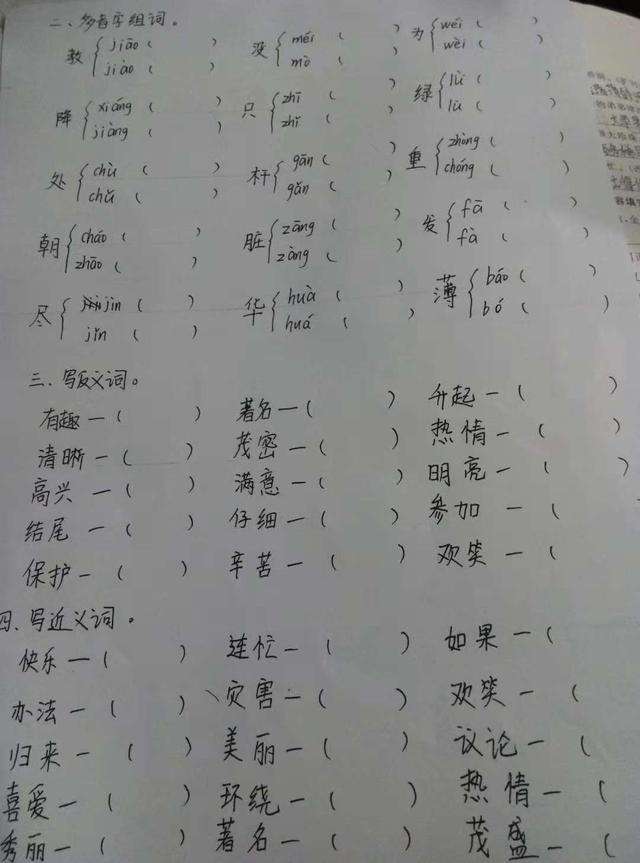 二、多音字组词。
教 jiāo ( ) 没 méi ( ) 为 wéi ( )
jiào ( ) mò ( ) wèi ( )
降 xiáng ( ) 只 zhī ( ) 绿 lǜ ( )
jiàng ( ) zhǐ ( ) lù ( )
处 chù ( ) 杆 gān ( ) 重 zhòng ( )
chǔ ( ) gǎn ( ) chóng ( )
朝 cháo ( ) 脏 zāng ( ) 发 fā ( )
zhāo ( ) zàng ( ) fà ( )
尽 jìn ( ) 华 huà ( ) 薄 báo ( )
jǐn ( ) huá ( ) bó ( )
三、写反义词。
有趣—( ) 著名—( ) 升起—( )
清晰—( ) 茂密—( ) 热情—( )
高兴—( ) 满意—( ) 明亮—( )
结尾—( ) 仔细—( ) 参加—( )
保护—( ) 辛苦—( ) 欢笑—( )
四、写近义词。
快乐—( ) 连忙—( ) 如果—(
办法—( ) 灾害—( ) 欢笑—(
归来—( ) 美丽—( ) 议论—(
喜爱—( ) 环绕—( ) 热情—(
秀丽—( ) 著名—( ) 茂盛—(